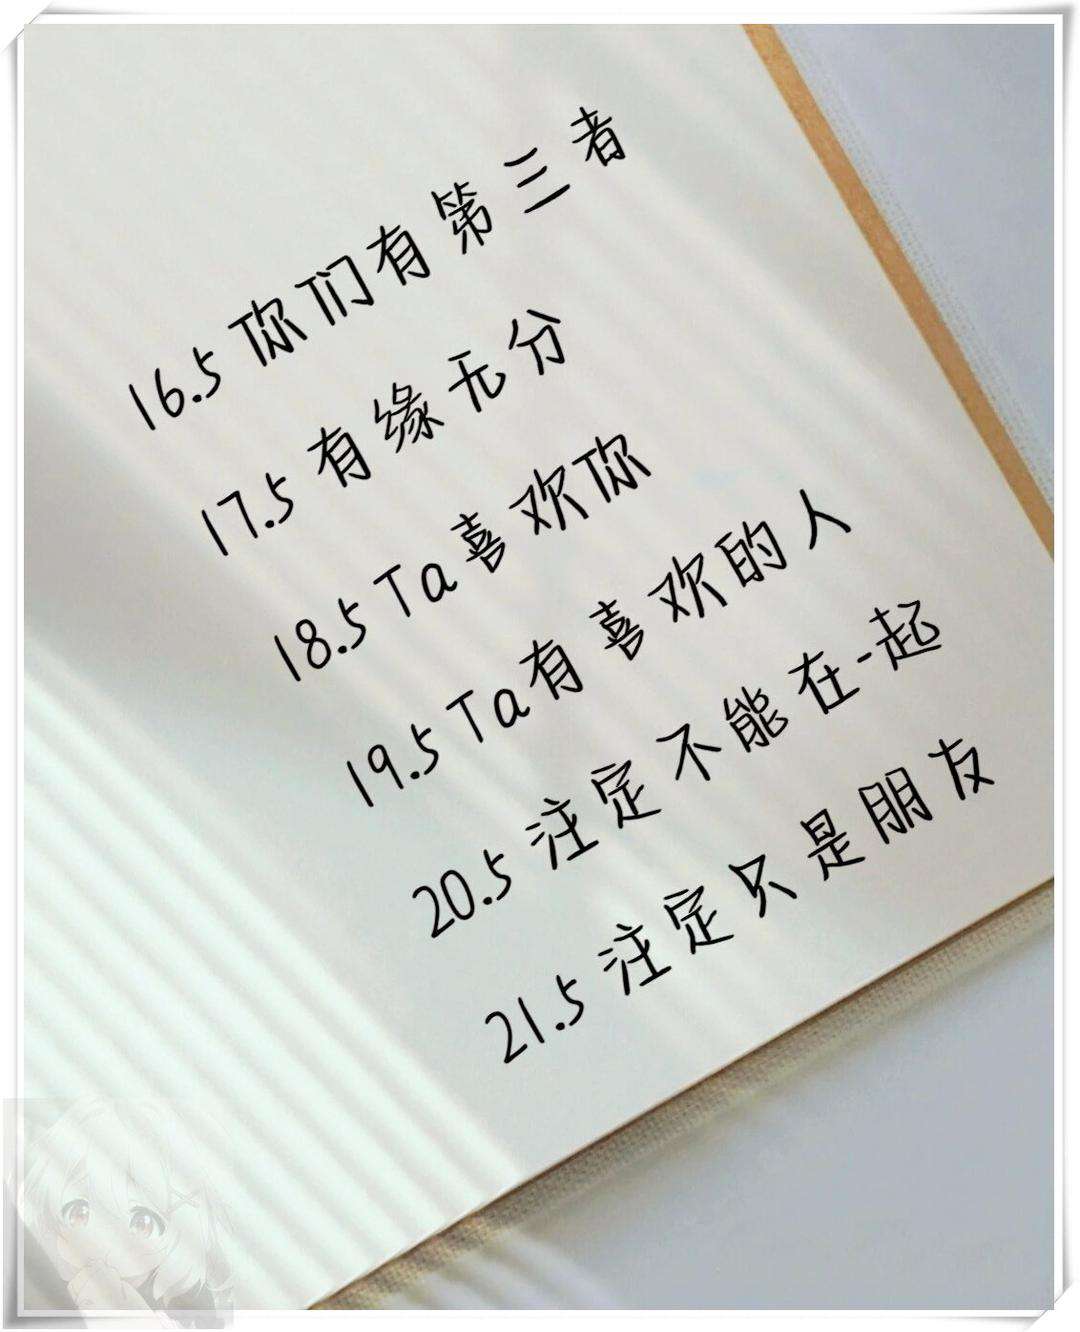 16.5 你们有第三者
17.5 有缘无分
18.5 Ta喜欢你
19.5 Ta有喜欢的人
20.5 注定不能在一起
21.5 注定只是朋友